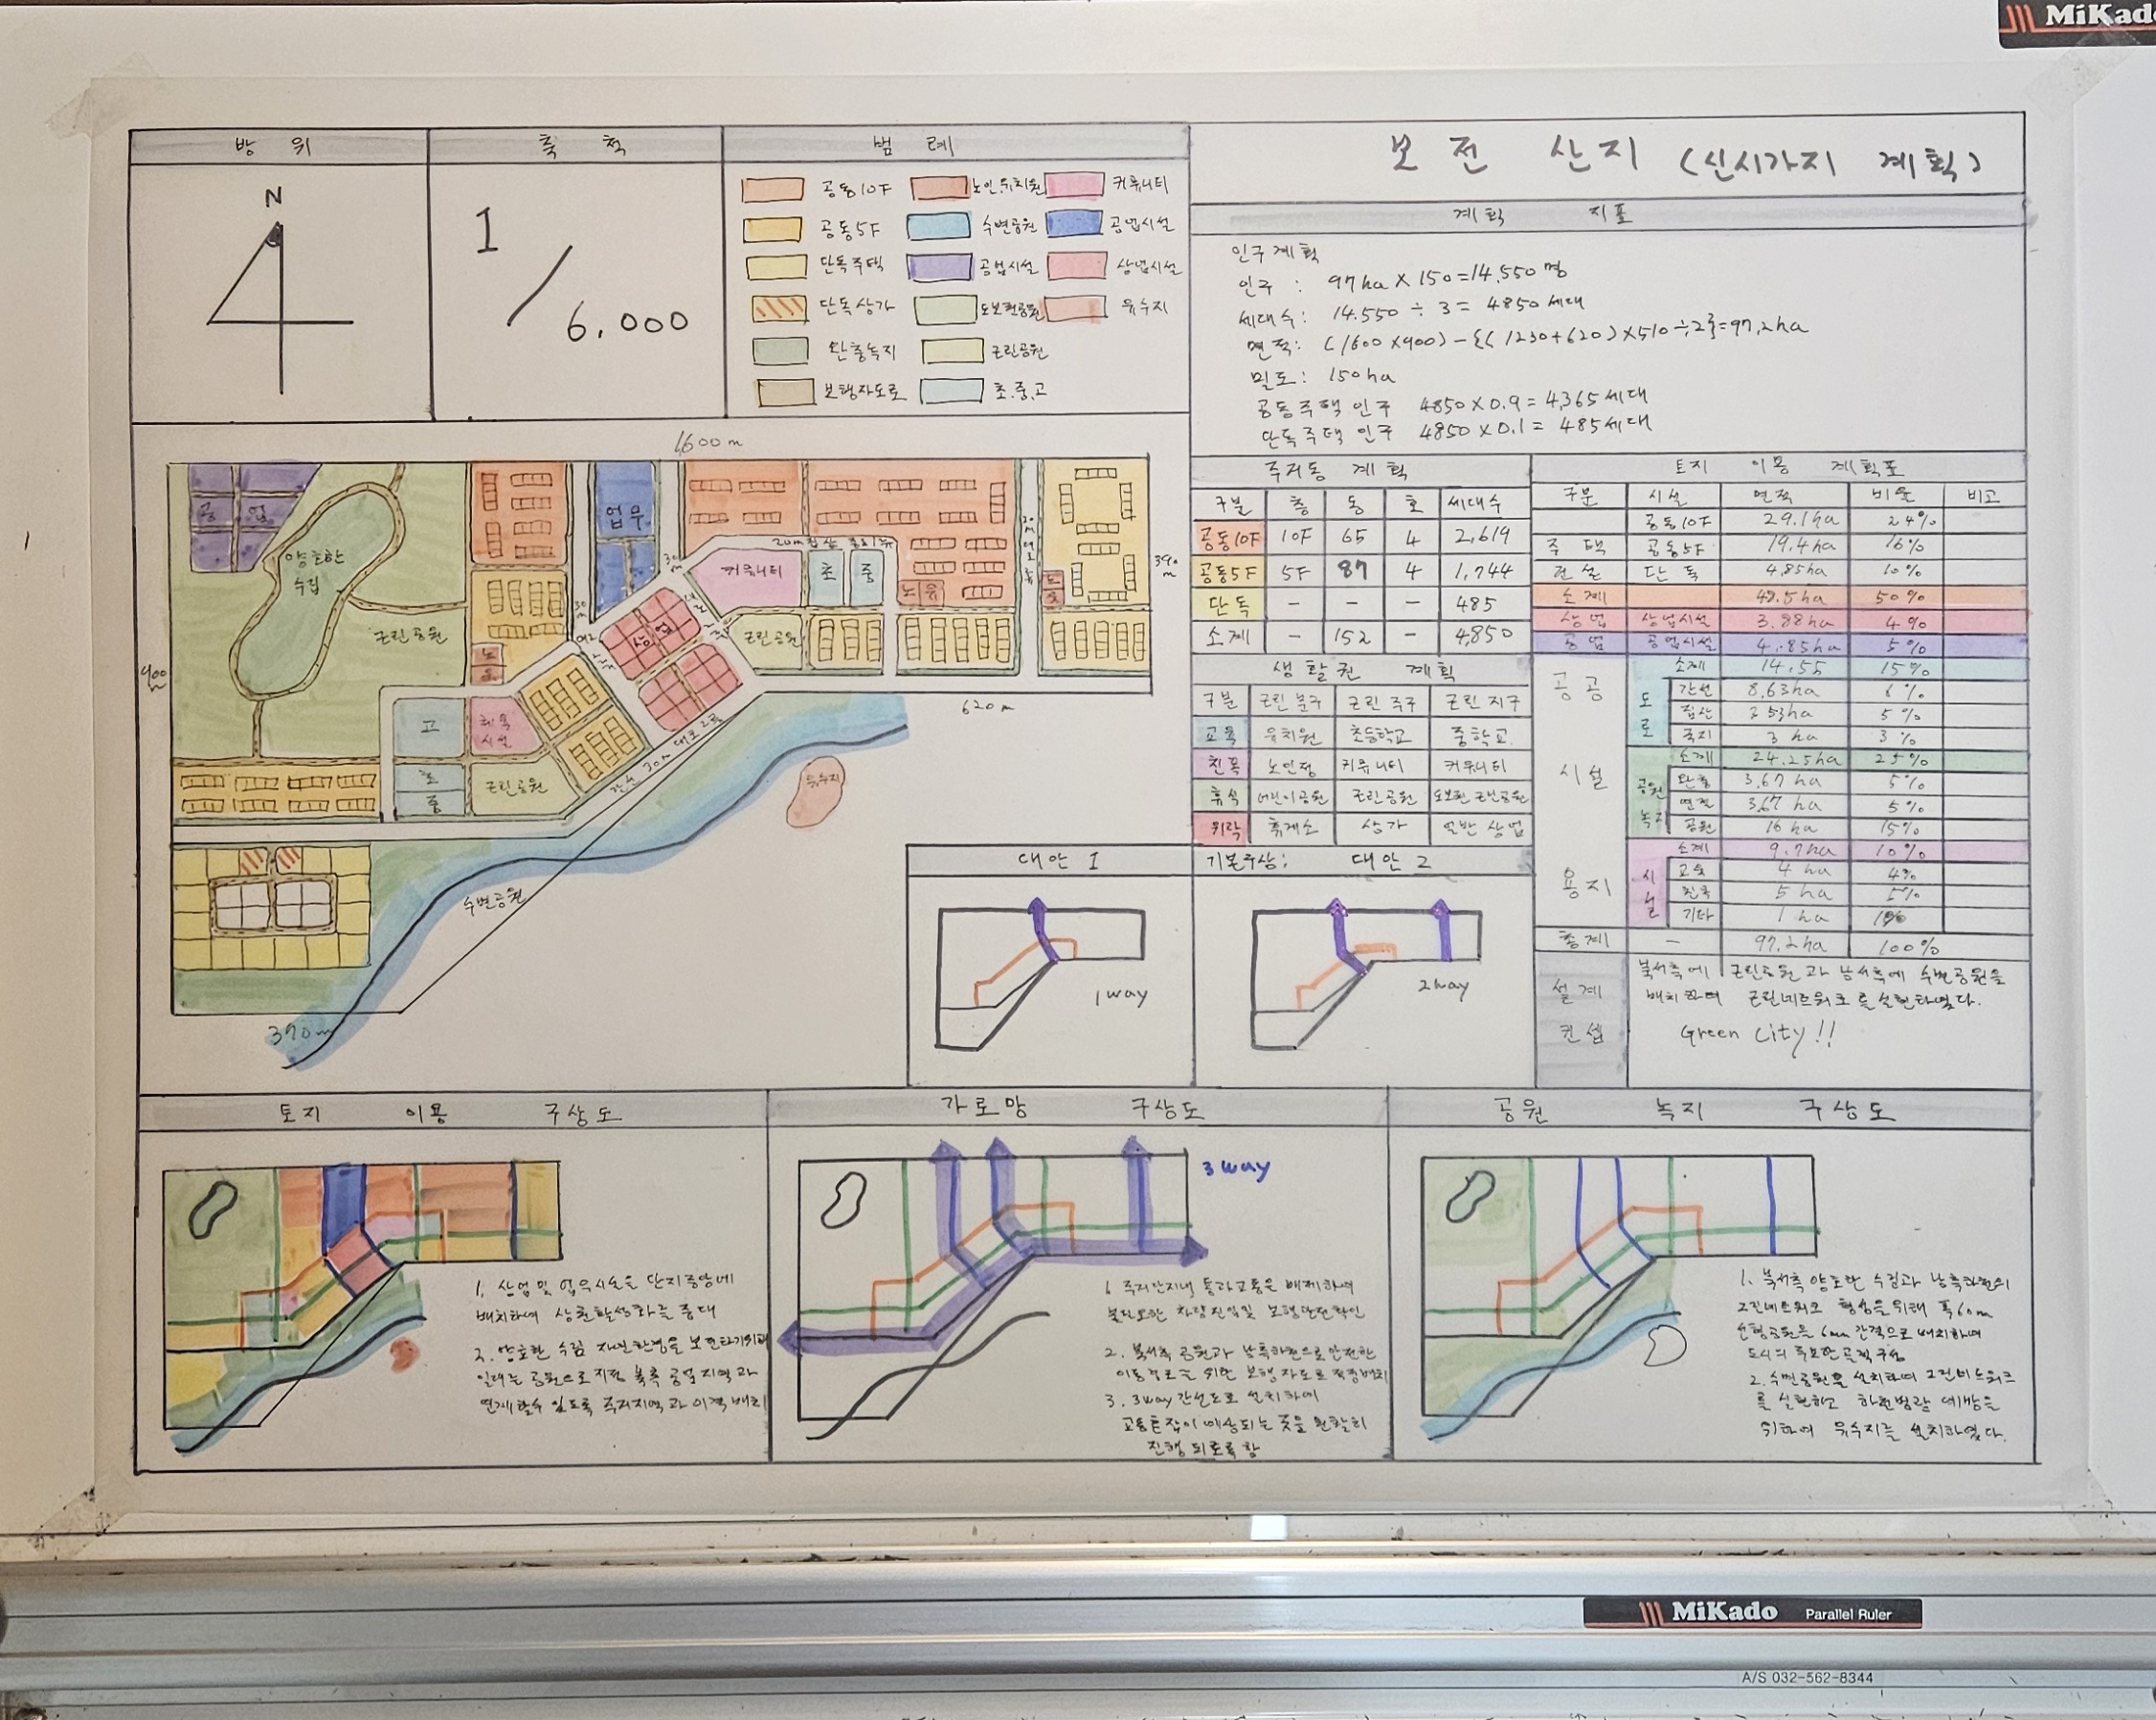 MiKado
방 위
축 척
범 례
N
1/6,000
공동10F
노인.유치원
커뮤니티
공동5F
수변공원
공업시설
단독주택
공업시설
상업시설
단독상가
도보권공원
유수지
완충녹지
근린공원
보행자도로
초.중.고
보전 산지 (신시가지 계획)
계획 지표
인구계획
인구 : 97ha X 150=14,550명
세대수: 14.550 ÷ 3 = 4850세대
면적: (1600 X900) - {( 1230+620) X510÷2}=97.2ha
밀도: 150ha
공동주택 인구 4850X0.9=4,365세대
단독주택 인구 4850X0.1= 485세대
1600m
공업
양호한
수림
근린공원
업무
커뮤니티
초
중
노
유
상업
근린공원
노
유
고
체육
시설
초
중
근린공원
30m
390m
900
620m
유수지
수변공원
370m
주거동 계획
구분 층 동 호 세대수
공동10F 10F 65 4 2,619
공동5F 5F 87 4 1,744
단독 - - - 485
소계 - 152 - 4,850
생활권 계획
구분 근린분구 근린주구 근린지구
교육 유치원 초등학교 중학교
친목 노인정 커뮤니티 커뮤니티
휴식 어린이공원 근린공원 도보권 근린공원
위락 휴게소 상가 일반상업
토지 이용 계획표
구분 시설 면적 비율 비고
주택
건설
공동10F 29.1ha 24%
공동5F 19.4ha 16%
단독 4.85ha 10%
소계 48.5ha 50%
상업 상업시설 3.88ha 4%
공업 공업시설 4.85ha 5%
공공
시설
용지
도로
소계 14.55 15%
간선 8.63ha 6%
집산 3.53ha 5%
국지 3ha 3%
공원
녹지
소계 24.25ha 25%
완충 3.67ha 5%
연결 3.67ha 5%
공원 16ha 15%
시설
소계 9.7ha 10%
교육 4ha 4%
친목 5ha 5%
기타 1ha 1%
총계 - 97.2ha 100%
설계
컨셉
북서측에 근린공원과 남서측에 수변공원을
배치하여 그린네트워크를 실현하였다.
Green City!!
대안 1
기본구상: 대안 2
1way
2way
토지 이용 구상도
1. 상업 및 업무시설을 단지중앙에
배치하여 상권활성화를 증대
2. 양호한 수림 자연환경을 보전하기위해
일대는 공원으로 지정 북측 공업지역과
연계할수 있도록 주거지역과 이격 배치
가로망 구상도
3way
1. 주거단지내 통과교통은 배제하여
불필요한 차량진입 및 보행안전확인
2. 북서측 공원과 남측하천으로 안전한
이동경로를 위한 보행자도로 적정배치
3. 3way 간선도로 설치하여
교통혼잡이 예상되는 곳을 원활히
진행 되로록 함
공원 녹지 구상도
1. 북서측 양호한 수림과 남측하천의
그린네트워크 형성을 위해 폭60m
선형공원을 6mm 간격으로 배치하여
도시의 주요한 골격구성
2. 수변공원을 설치하여 그린네트워크
를 실현하고 하천범람 예방을
위하여 유수지를 설치하였다.
MiKado Parallel Ruler
A/S 032-562-8344